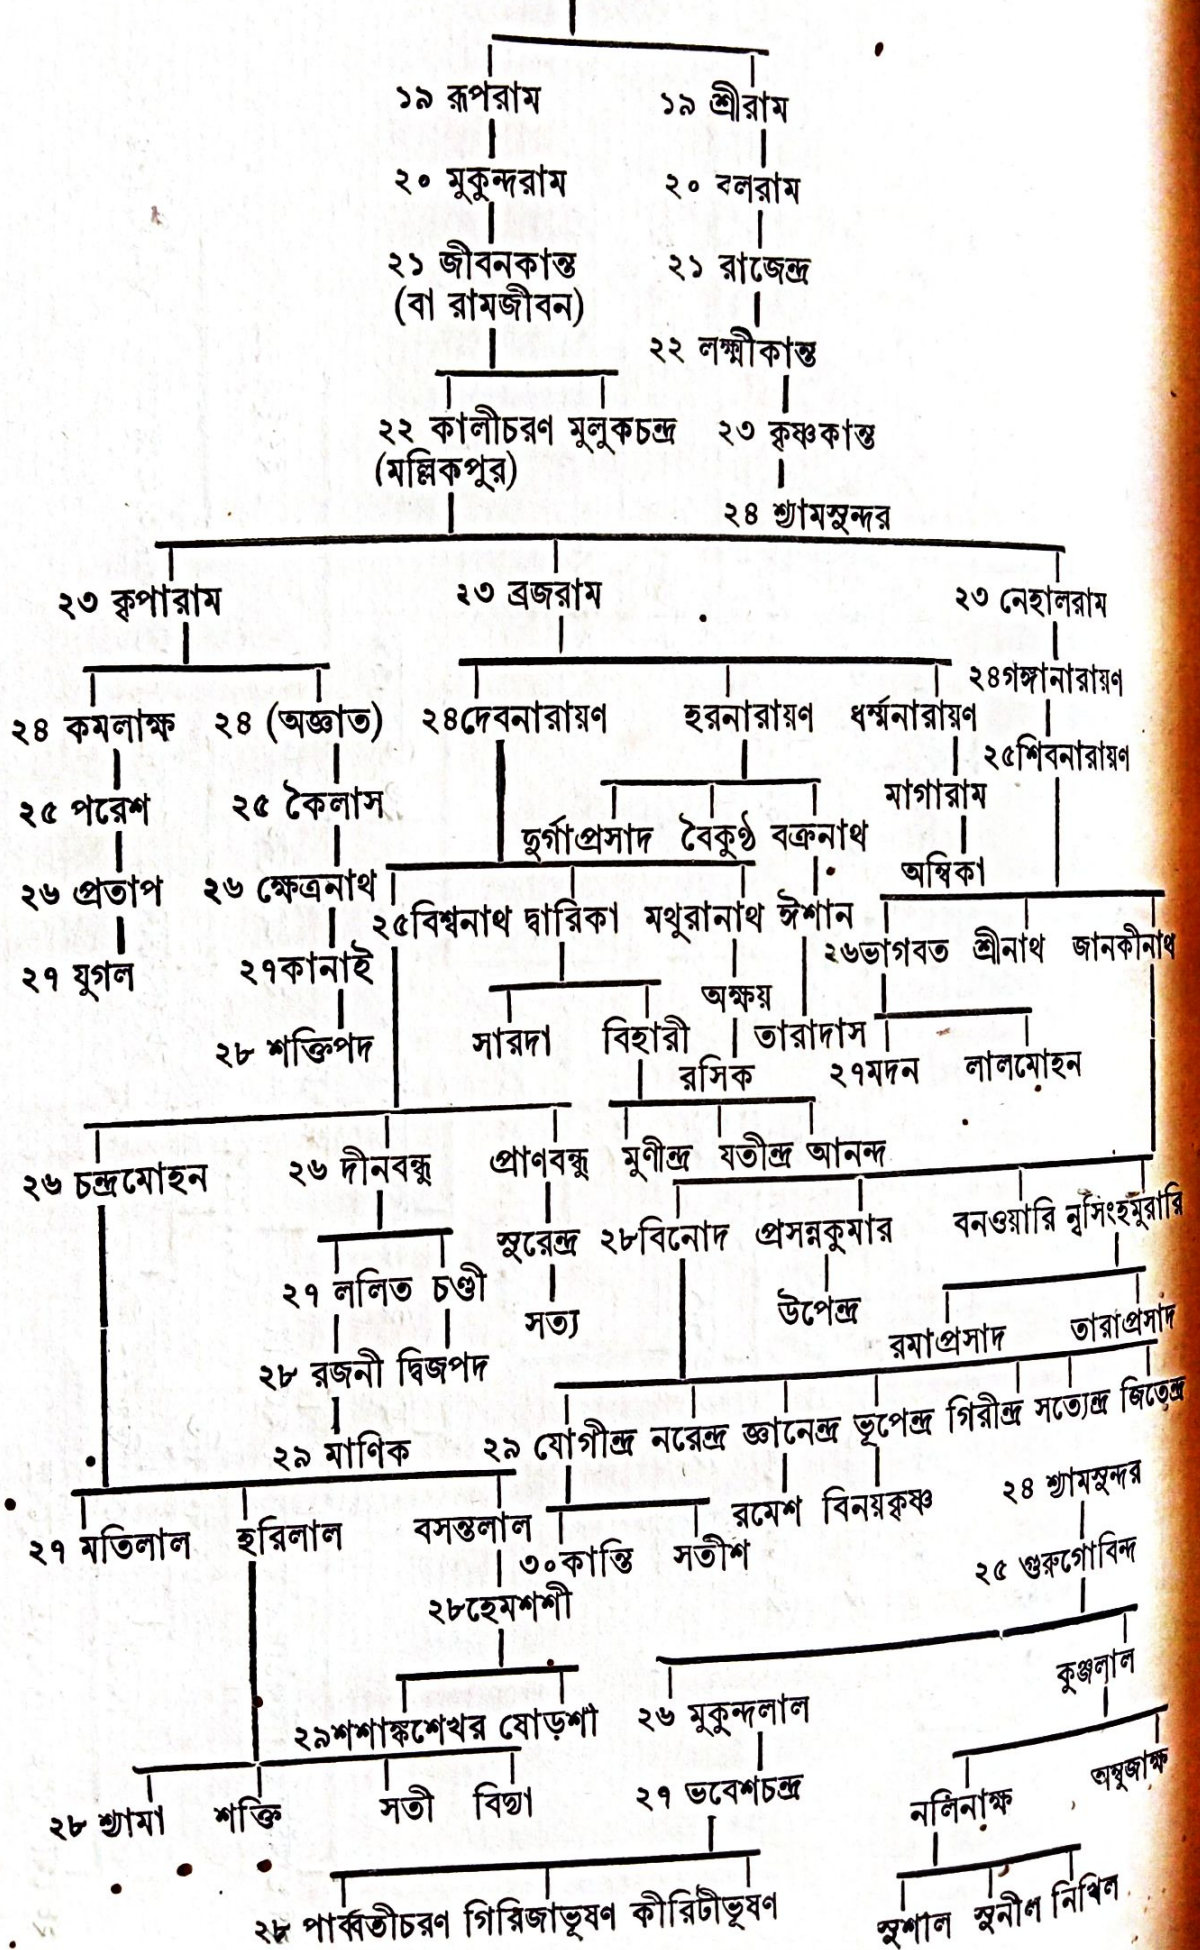 ১৯ রূপরাম ১৯ শ্রীরাম
২০ মুকুন্দরাম ২০ বলরাম
২১ জীবনকান্ত ২১ রাজেন্দ্র
(বা রামজীবন)
২২ লক্ষ্মীকান্ত
২২ কালীচরণ মুলুকচন্দ্র ২৩ কৃষ্ণকান্ত
(মল্লিকপুর)
২৪ শ্যামসুন্দর
২৩ কৃপারাম ২৩ ব্রজরাম ২৩ নেহালরাম
২৪গঙ্গানারায়ণ
২৪ কমলাক্ষ ২৪ (অজ্ঞাত) ২৪দেবনারায়ণ হরনারায়ণ ধর্ম্মনারায়ণ
২৫শিবনারায়ণ
২৫ পরেশ ২৫ কৈলাস মাগারাম
দুর্গাপ্রসাদ বৈকুণ্ঠ বক্রনাথ
অম্বিকা
২৬ প্রতাপ ২৬ ক্ষেত্রনাথ
২৫বিশ্বনাথ দ্বারিকা মথুরানাথ ঈশান
২৬ভাগবত শ্রীনাথ জানকীনাথ
২৭ যুগল ২৭কানাই
অক্ষয়
২৮ শক্তিপদ সারদা বিহারী তারাদাস
রসিক ২৭মদন লালমোহন
২৬ চন্দ্রমোহন ২৬ দীনবন্ধু প্রাণবন্ধু মুণীন্দ্র যতীন্দ্র আনন্দ
সুরেন্দ্র ২৮বিনোদ প্রসন্নকুমার বনওয়ারি নৃসিংহমুরারি
২৭ ললিত চণ্ডী
সত্য উপেন্দ্র
রমাপ্রসাদ তারাপ্রসাদ
২৮ রজনী দ্বিজপদ
২৯ মাণিক ২৯ যোগীন্দ্র নরেন্দ্র জ্ঞানেন্দ্র ভূপেন্দ্র গিরীন্দ্র সত্যেন্দ্র জিতেন্দ্র
রমেশ বিনয়কৃষ্ণ ২৪ শ্যামসুন্দর
২৭ মতিলাল হরিলাল বসন্তলাল
৩০কান্তি সতীশ ২৫ গুরুগোবিন্দ
২৮হেমশশী
কুঞ্জলাল
২৯শশাঙ্কশেখর ষোড়শী ২৬ মুকুন্দলাল
অম্বুজাক্ষ
২৮ শ্যামা শক্তি সতী বিদ্যা ২৭ ভবেশচন্দ্র নলিনাক্ষ
২৮ পার্ব্বতীচরণ গিরিজাভূষণ কীরিটীভূষণ সুশীল সুনীল নিখিল